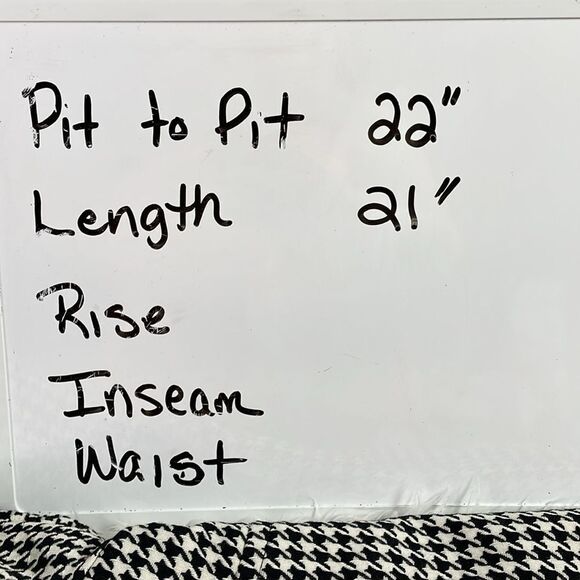 Pit to Pit 22"
Length 21"
Rise
Inseam
Waist